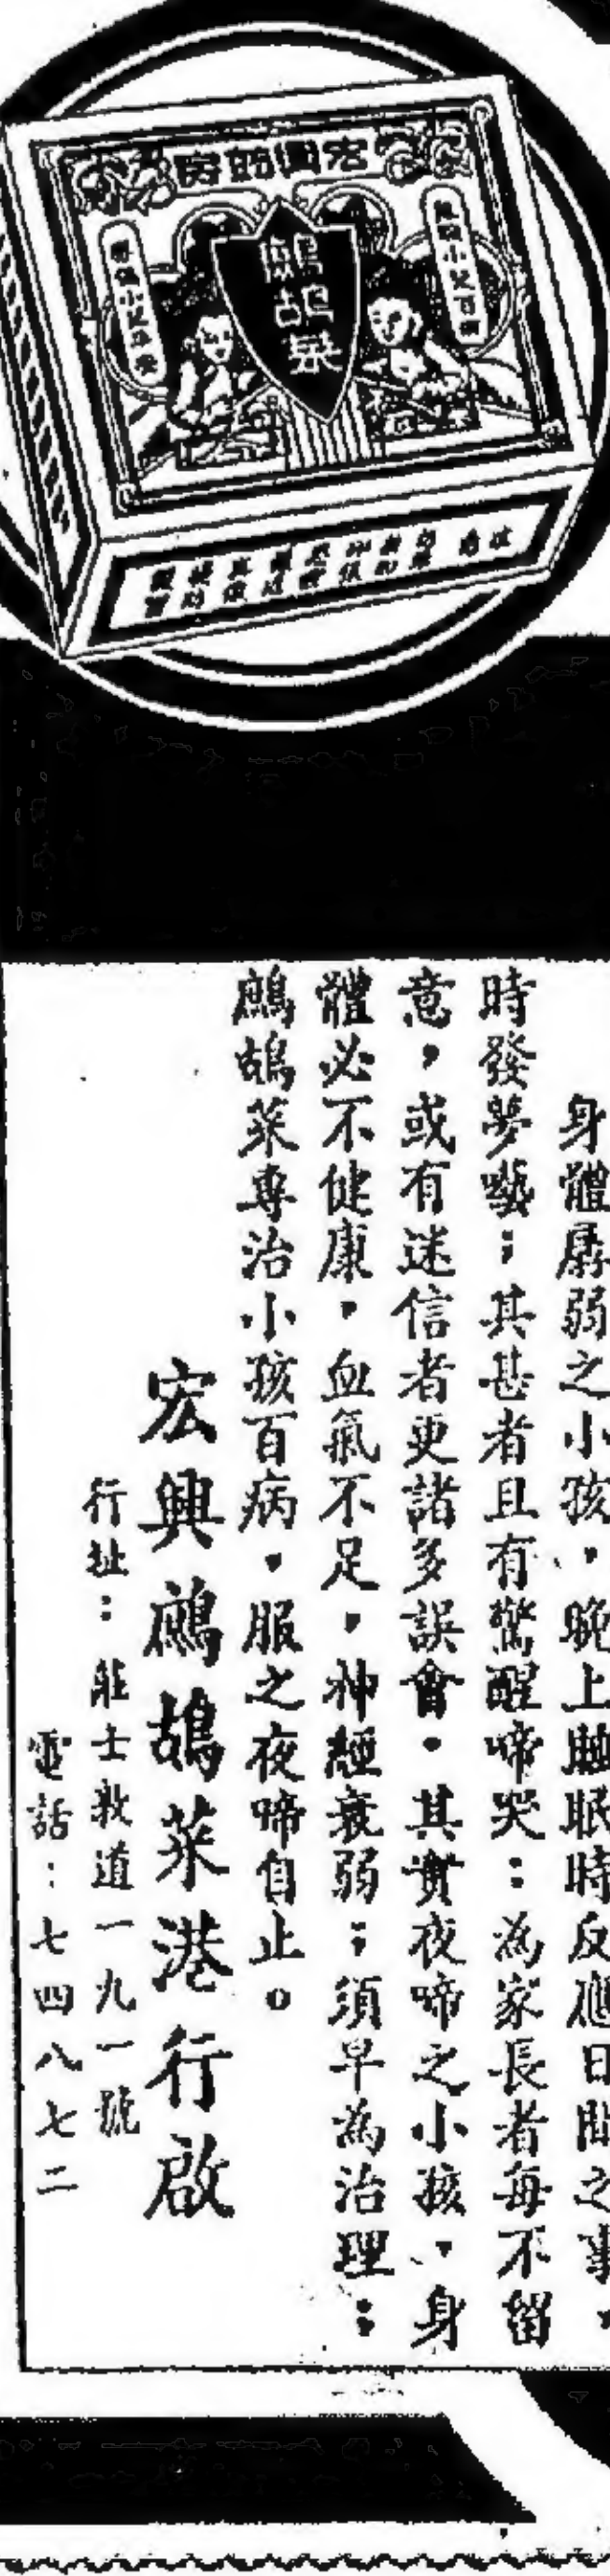 宏興葯房
鷓鴣菜
身體孱弱之小孩，晚上睡眠時反應日間之事，
時發夢囈；其甚者且有驚醒啼哭：為家長者每不留
意，或有迷信者更諸多誤會。其實夜啼之小孩，身
體必不健康，血氣不足，神經衰弱；須早為治理：
鷓鴣菜專治小孩百病，服之夜啼自止。
宏興鷓鴣菜港行啟
行址：莊士敦道一九一號
電話：七四八七二